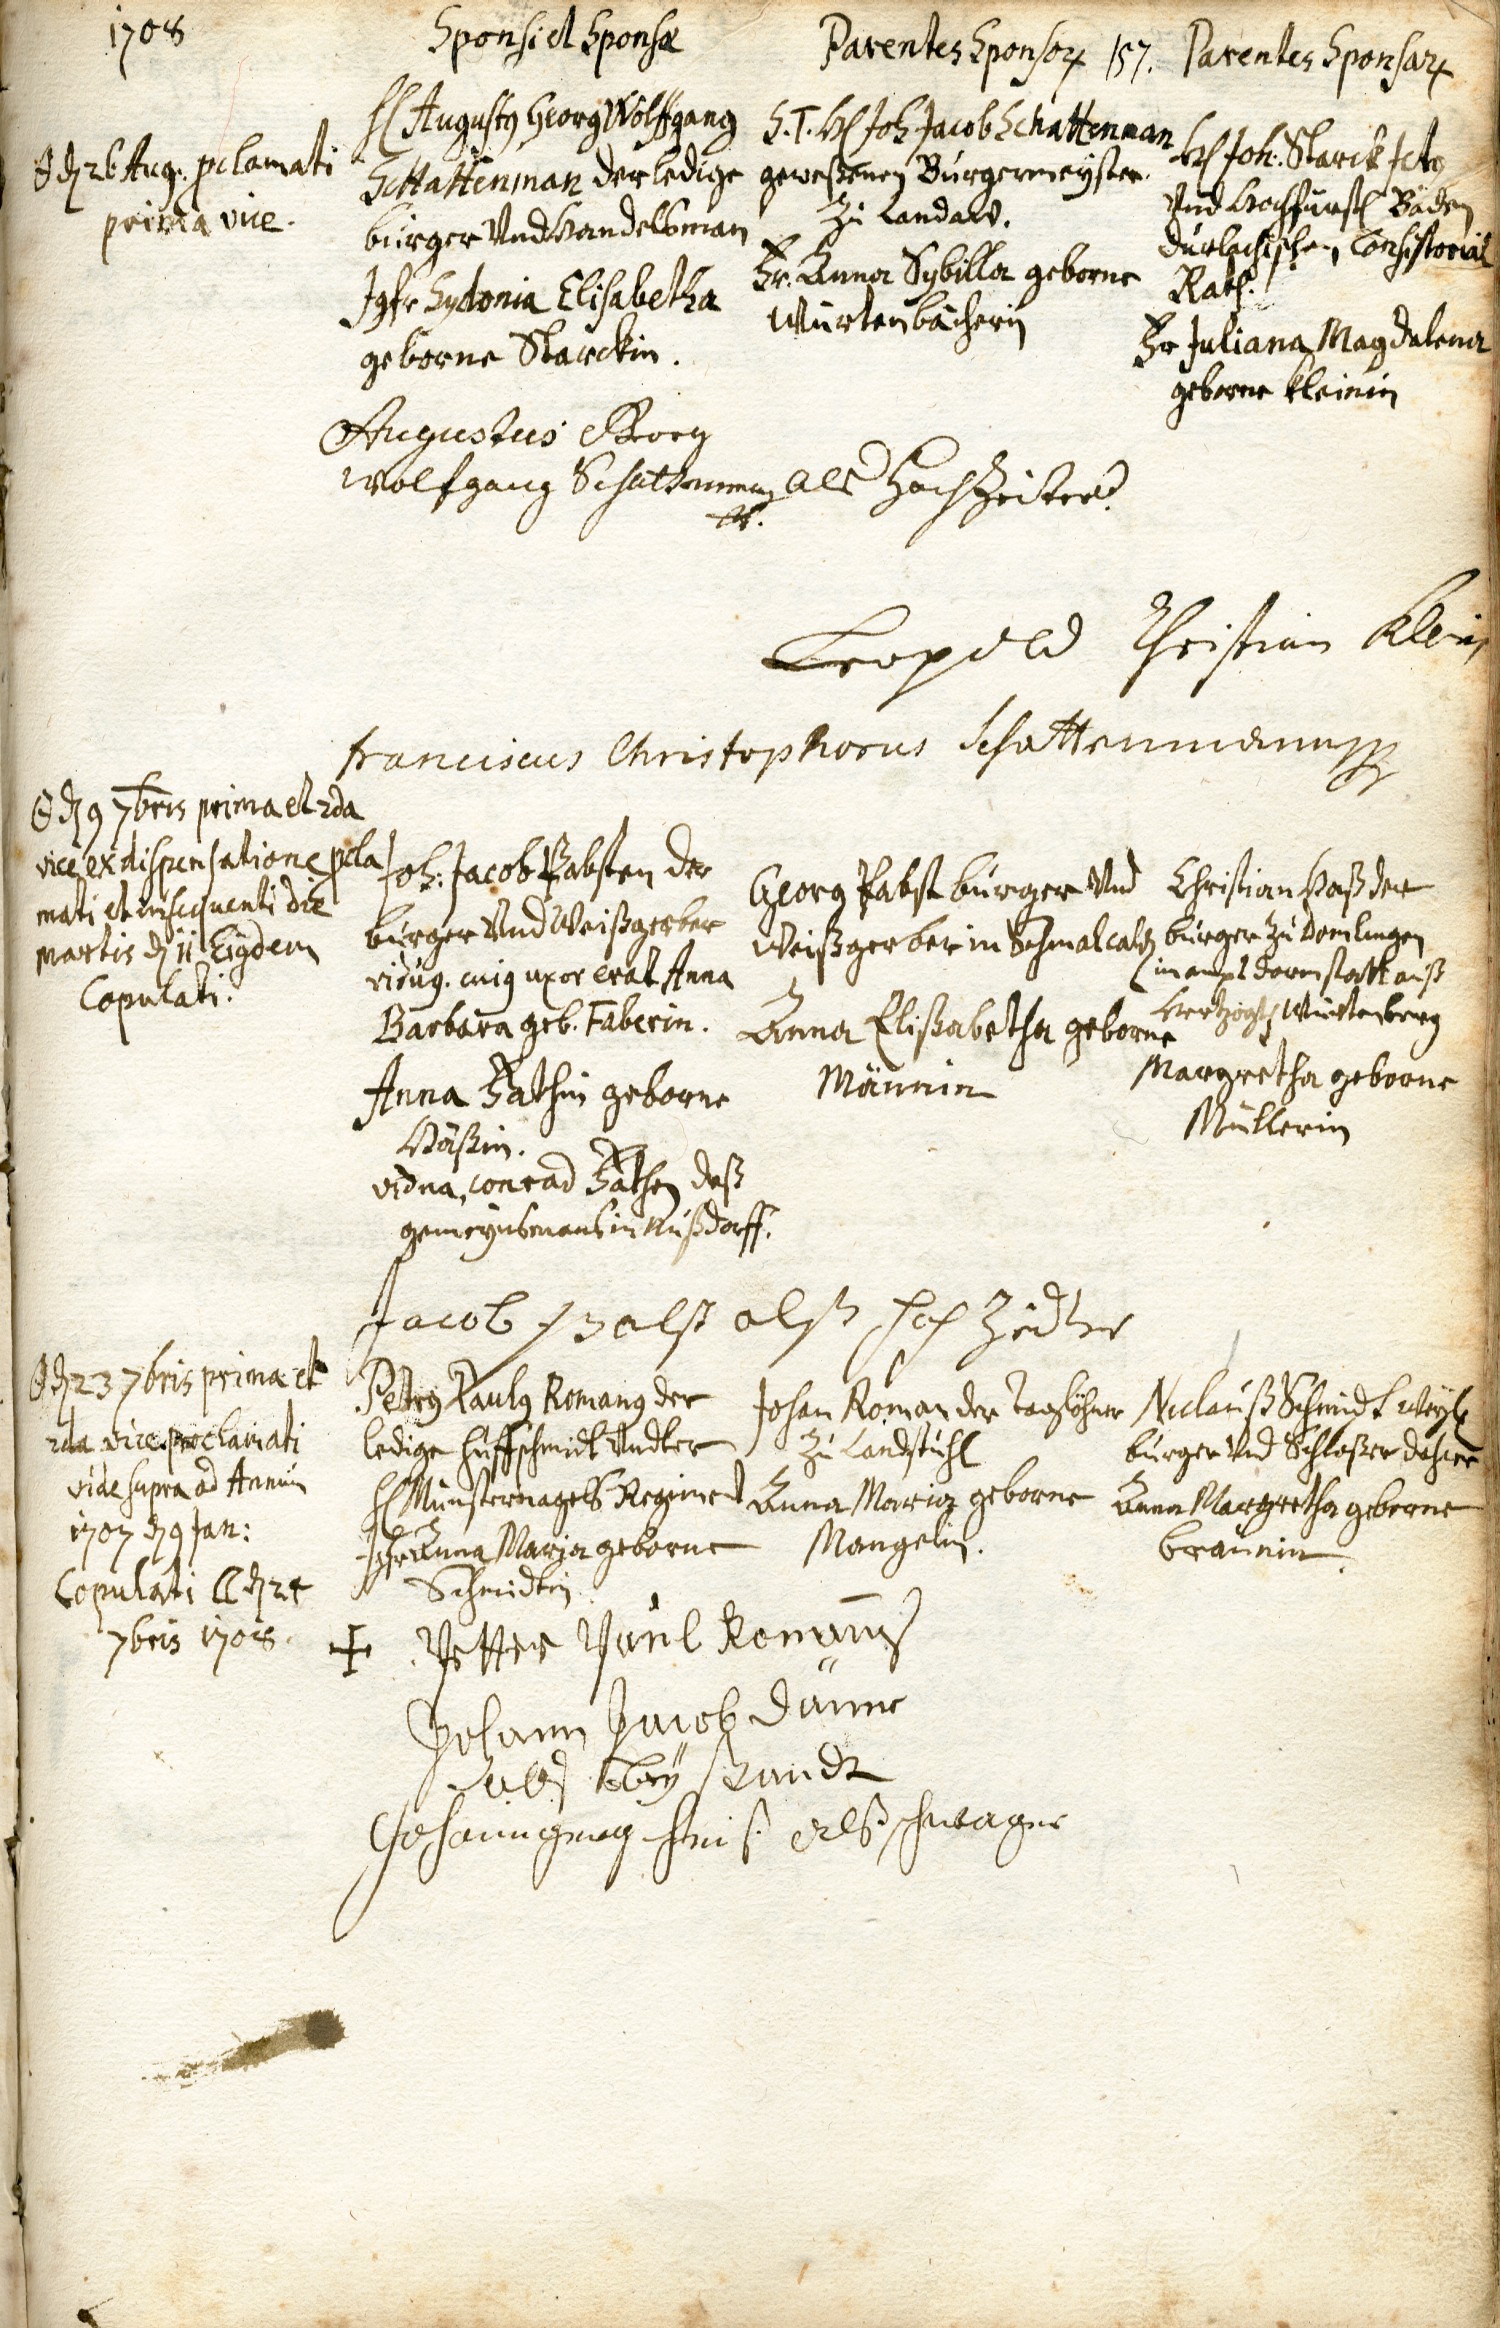 1708
Sponsi et Sponsæ
Parentes Sponsor
157.
Parentes Sponsar
26 Aug. pclamati
prima vice.
H Augusty Georg Wolffgang
Schattenman der ledige
burger Und Handelsman
Jgfr Sydonia Elisabetha
geborne Starckin.
S. T. H Joh Jacob Schattenman
geweßenen Burgermeyster
zu Landaw.
Fr. Anna Sybilla geborne
Würtenbächerin
H Joh. Starck Jcto
Und Hochfürstl Baden
durlachischen Consistorial
Rath.
Fr Juliana Magdalena
geborne Kleinin
Augustus Georg
Wolfgang Schattenman als Hochzeiter
Leopold Christian Klein
Franciscus Christophorus Schattenmann
9 7bris prima et 2da
vice ex dispensatione pcla
mati et insequenti die
martis d 11 Eigdem
Copulati.
Joh: Jacob Pabsten der
burger Und Weißgerber
viduy. cuiy uxor erat Anna
Barbara geb. Faberin.
Anna Fathin geborne
Haßin.
vidua, Conrad Fathen deß
gemeynsmans in Nußdorff.
Georg Pabst burger Und
Weißgerber in Schmalcald
Anna Elißabetha geborne
Männin
Christian Haß der
burger zu
im ampt auß
Würtenberg
Margretha geborne
Müllerin
Jacob Pabst alß Hochzeidter
d 23 7bris prima et
2da vice proclamati
vide supra ad Annum
1707 d 9 Jan:
Copulati d 24
7bris 1708.
Petry Pauly Romany der
ledige huffschmidt Under
H Münsternagels Regiment
Jgfr Anna Maria geborne
Schmidtin
Johan Roman der Taglöhner
zu Landstuhl
Anna Maria geborne
Mangelin.
Niclauß Schmidt weyl
burger Und Schloßer dahier
Anna Margretha geborne
Braunin.
+ Petter Paul Romang
Johann Jacob Dänne
als beystandt
Johann georg als schwager